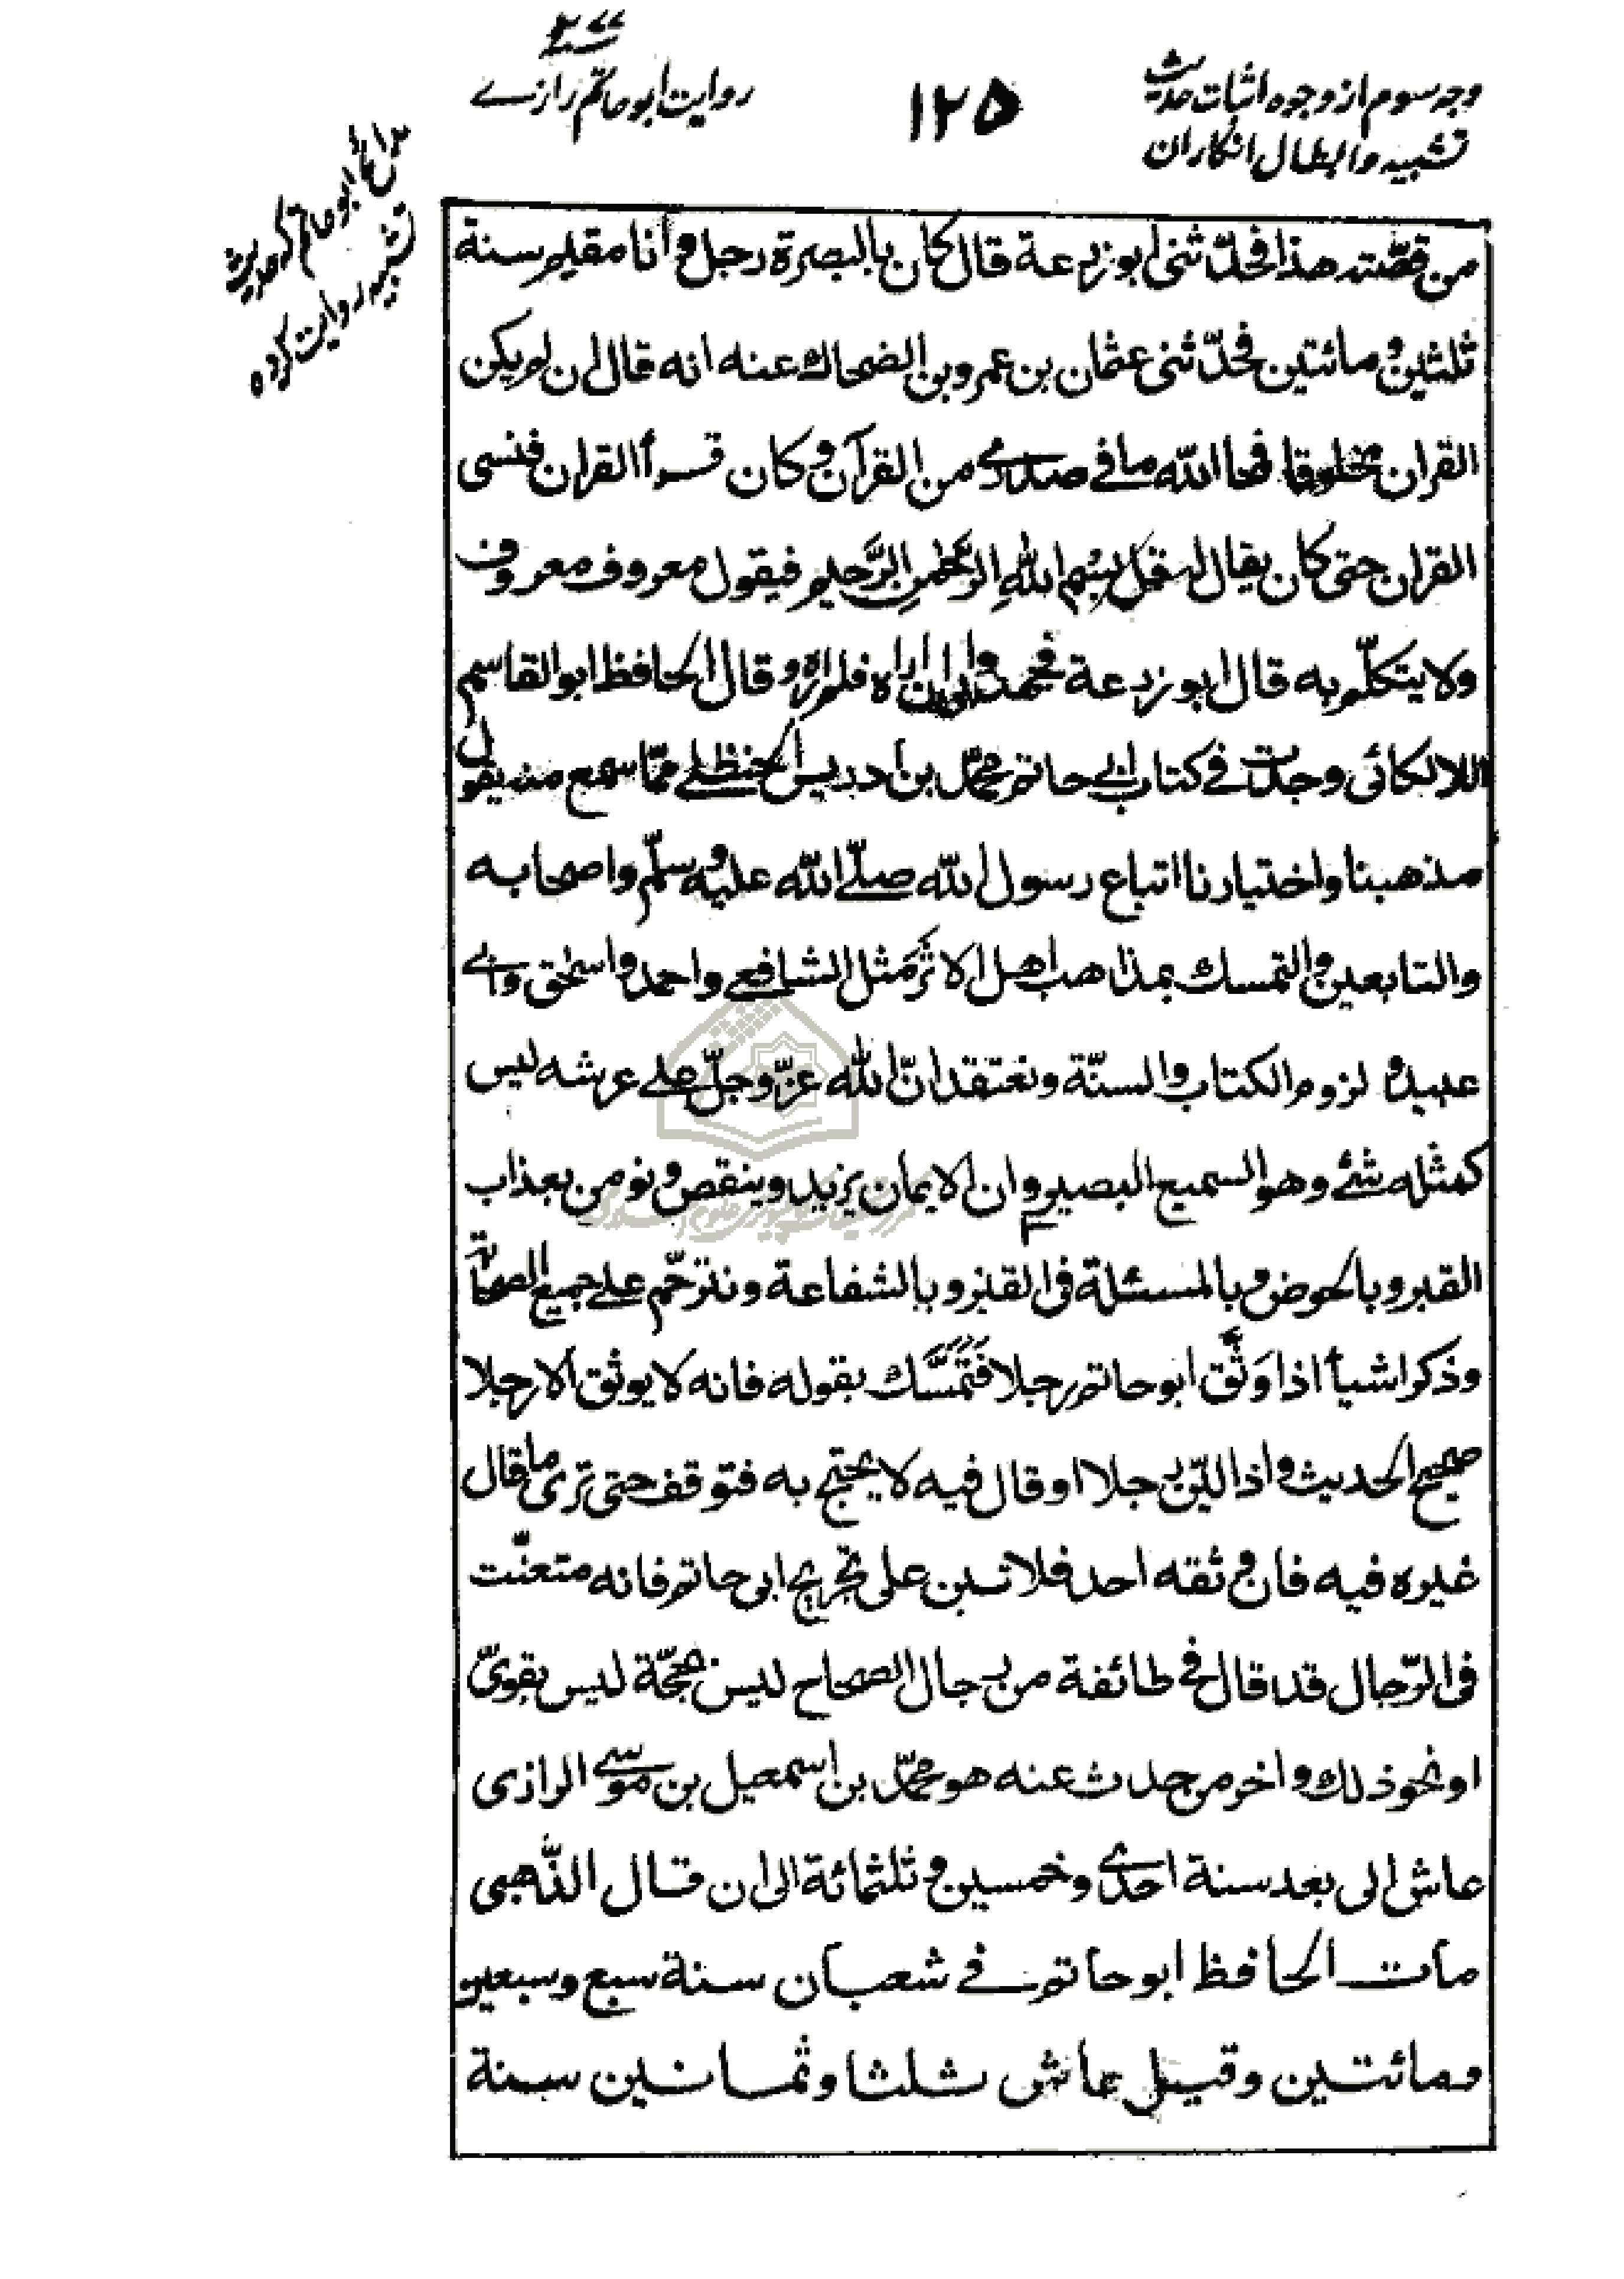 وجه سوم از وجوه اثبات حدیث
تشبیه و ابطال انکاران
۱۲۵
روایت ابو حاتم رازے
۲۷۷
ابو حاتم کہ حدیث
تشبیه روایت کرده
من قصّته هذا فحدّثنی ابو زرعة قال کان بالبصرة رجل و أنا مقیم سنة
ثلثین و مائتین فحدّثنی عثمان بن عمرو بن الضحاک عنه انه قال ان لم یکن
القران مخلوقا فمحا الله ما فی صدری من القرآن و کان قرأ القران فنسی
القران حتی کان یقال له قل بِسْمِ اللهِ الرَّحْمٰنِ الرَّحِیْمِ فیقول معروف معروف
ولا یتکلّم به قال ابو زرعة فجهدوا بی ان اراه فلم اره و قال الحافظ ابو القاسم
اللالکائی وجدت فے کتاب ابے حاتم محمّد بن ادریس الحنظلے ممّا سمع منه یقول
مذهبنا و اختیارنا اتباع رسول الله صلّے الله علیه و سلّم و اصحابه
والتابعین و التمسک بمذاهب اهل الاثر مثل الشافعے و احمد و اسحٰق و ابے
عبید و لزوم الکتاب و السنّة و نعتقد انّ الله عزّ و جلّ علے عرشه لیس
کمثله شئے و هو السمیع البصیر و ان الایمان یزید و ینقص و نومن بعذاب
القبر و بالحوض و بالمسئلة فی القبر و بالشفاعة و نترحّم علے جمیع الصحابة
وذکر اشیأ اذا وَثَّق ابو حاتم رجلا فَتَمَسَّک بقوله فانه لا یوثق الا رجلا
صحیح الحدیث و اذا لیّن رجلا او قال فیه لا یحتج به فتوقف حتی تری ما قال
غیره فیه فان وثقه احد فلا تبن علی تجریح ابی حاتم فانه متعنّت
فی الرّجال قد قال فے طائفة من رجال الصحاح لیس بحجّة لیس بقویّ
او نحو ذلک و اخر من حدث عنه هو محمّد بن اسمعیل بن موسے الرازی
عاش الی بعد سنة احدے و خمسین و ثلثمائة الی ان قال الذّهبی
مات الحافظ ابو حاتم فے شعبان سنة سبع و سبعین
ومائتین و قیل عاش ثلثا و ثمانین سنة